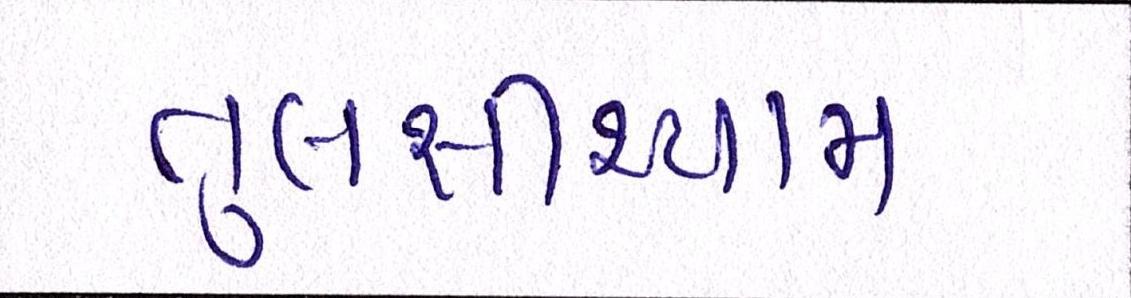 તુલસીશ્યામ